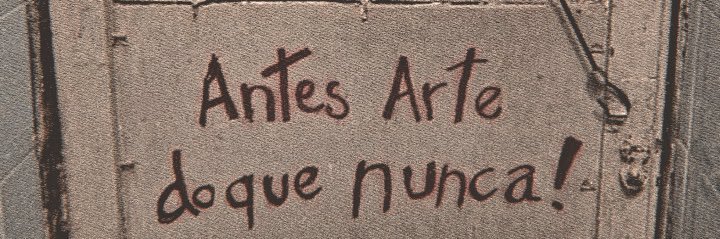 Antes Arte
do que nunca!